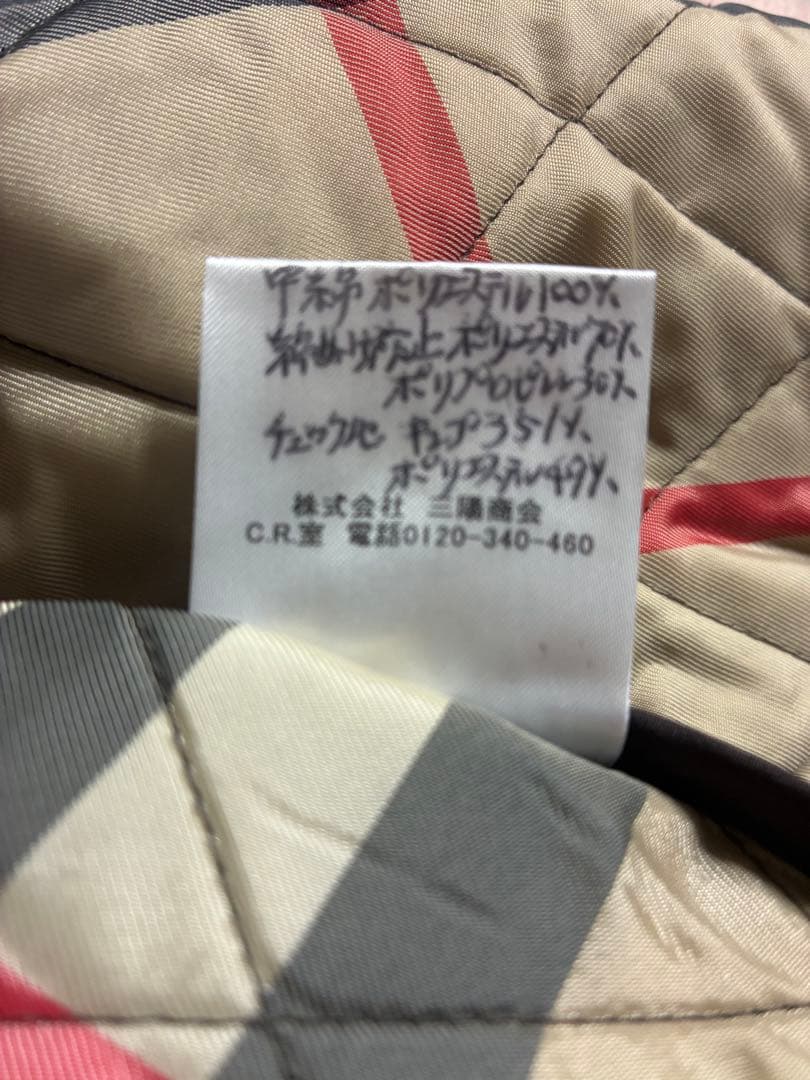 甲部 ポリエステル100%
綿ぬけ防止 ポリエステル70%
ポリプロピレン30%
チェック地 キュプラ51%
ポリエステル49%
株式会社 三陽商会
C.R.室 電話0120-340-460